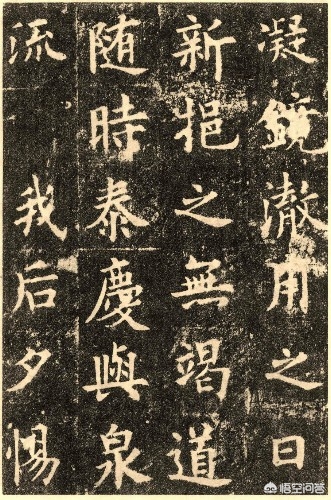 凝鏡澈用之日
新挹之無竭道
随時泰慶與泉
流 我后夕惕
悟空问答